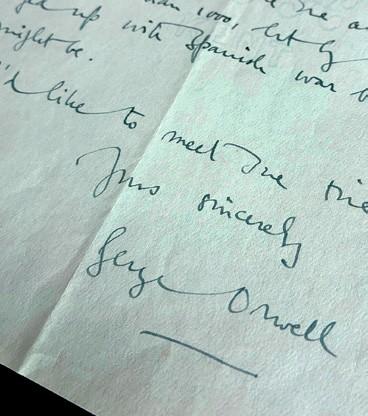 than 1000, let by
up with Spanish war b
might be.
'd like to meet
Yours sincerely
George Orwell